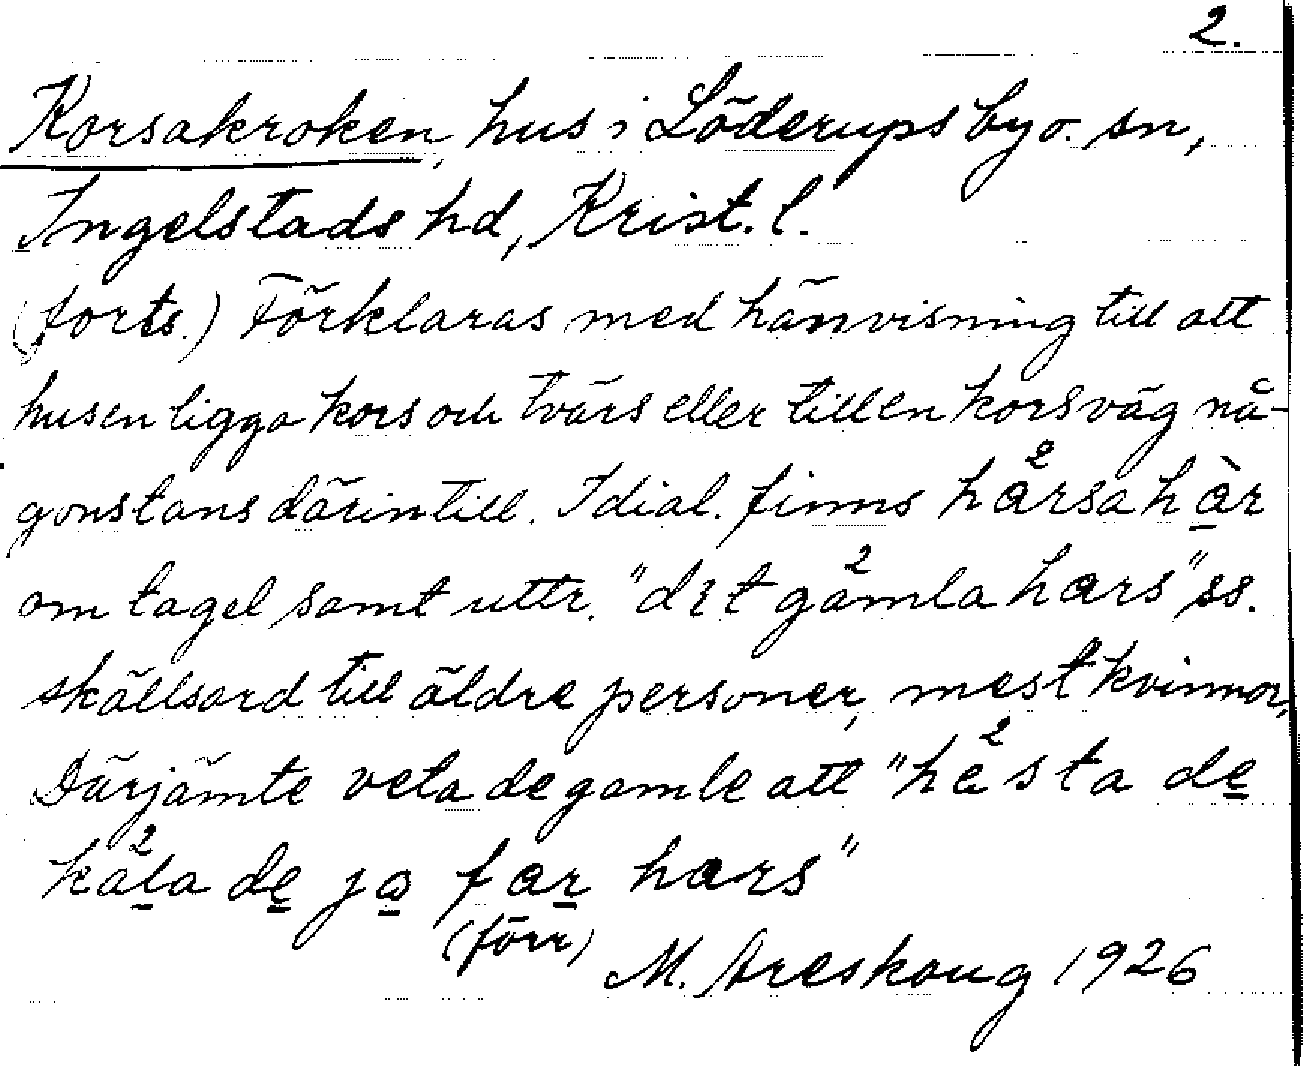 2.
Korsakroken, hus i Löderups by o. sn,
Ingelstads hd, Krist. l.
(forts.) Förklaras med hänvisning till att
husen ligga kors och tvärs eller till en korsväg nå-
gonstans därintill. I dial. finns hårsa hàr
om tagel samt uttr. "det gamla hars" ss.
skällsord till äldre personer, mest kvinnor,
Därjämte veta de gamle att "hésta de
kála de ja far hars"
(förr)
M. Areskoug 1926